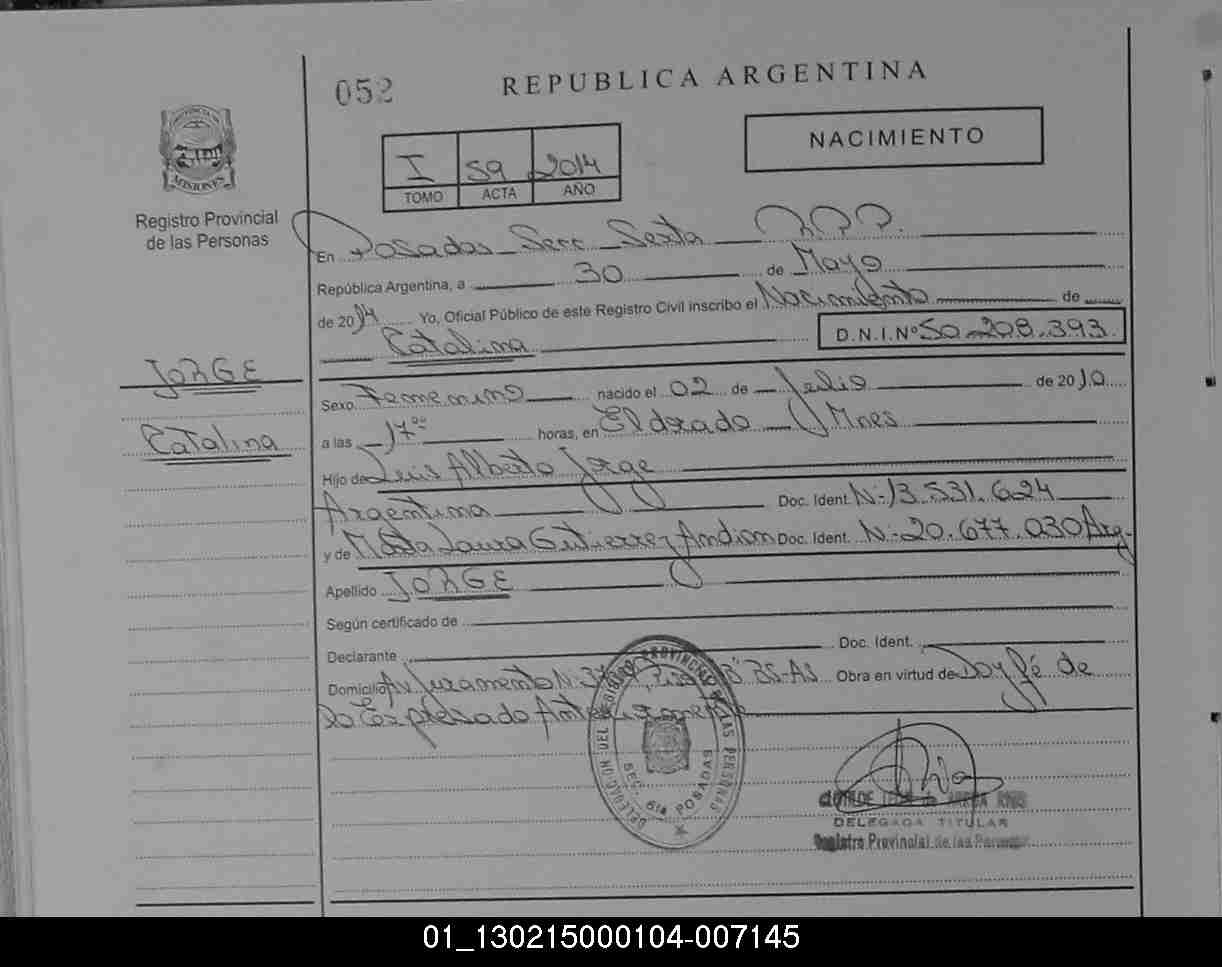 052
REPUBLICA ARGENTINA
PROVINCIA DE
MISIONES
Registro Provincial
de las Personas
I 59 2014
TOMO ACTA AÑO
NACIMIENTO
En Posadas Secc Sexta R.P.P.
República Argentina, a 30 de Mayo
de 2014 Yo, Oficial Público de este Registro Civil inscribo el Nacimiento de
Catalina D.N.I.Nº 50.208.393.
JORGE
Sexo Femenino nacido el 02 de Julio de 2010
a las 17⁰⁰ horas, en Eldorado Mnes
Catalina
Hijo de Luis Alberto Jorge
Argentina Doc. Ident. N: 13.531.624
y de Marta Laura Gutierrez Andion Doc. Ident. N: 20.677.030 Arg-
Apellido JORGE
Según certificado de
Declarante Doc. Ident.
Domicilio Av Juramento N: Piso BS-AS Obra en virtud de Doy fé de
lo Expresado
DELEGACION DEL REGISTRO PROVINCIAL DE LAS PERSONAS
SEC. 6ta POSADAS
DELEGADA TITULAR
Registro Provincial de las Personas
01_130215000104-007145